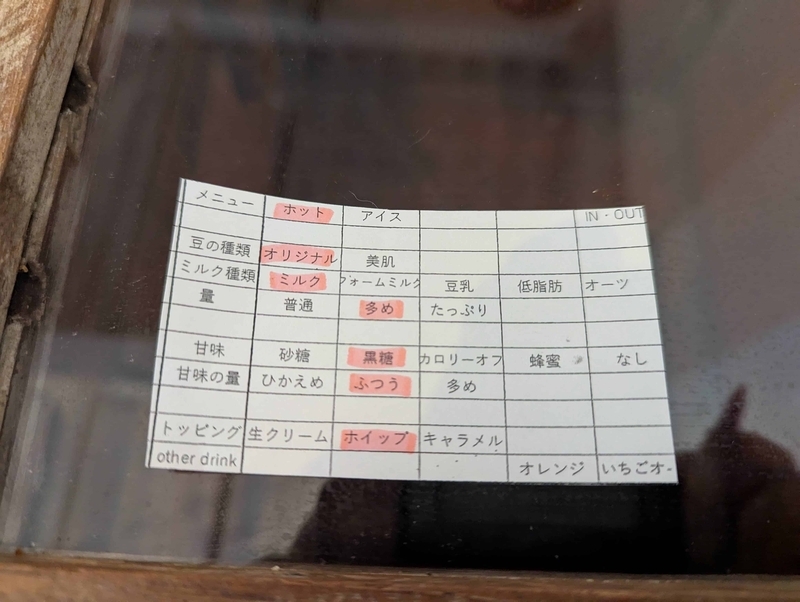 メニュー ホット アイス IN・OUT
豆の種類 オリジナル 美肌
ミルク種類 ミルク フォームミルク 豆乳 低脂肪 オーツ
量 普通 多め たっぷり
甘味 砂糖 黒糖 カロリーオフ 蜂蜜 なし
甘味の量 ひかえめ ふつう 多め
トッピング 生クリーム ホイップ キャラメル
other drink オレンジ いちごオ-